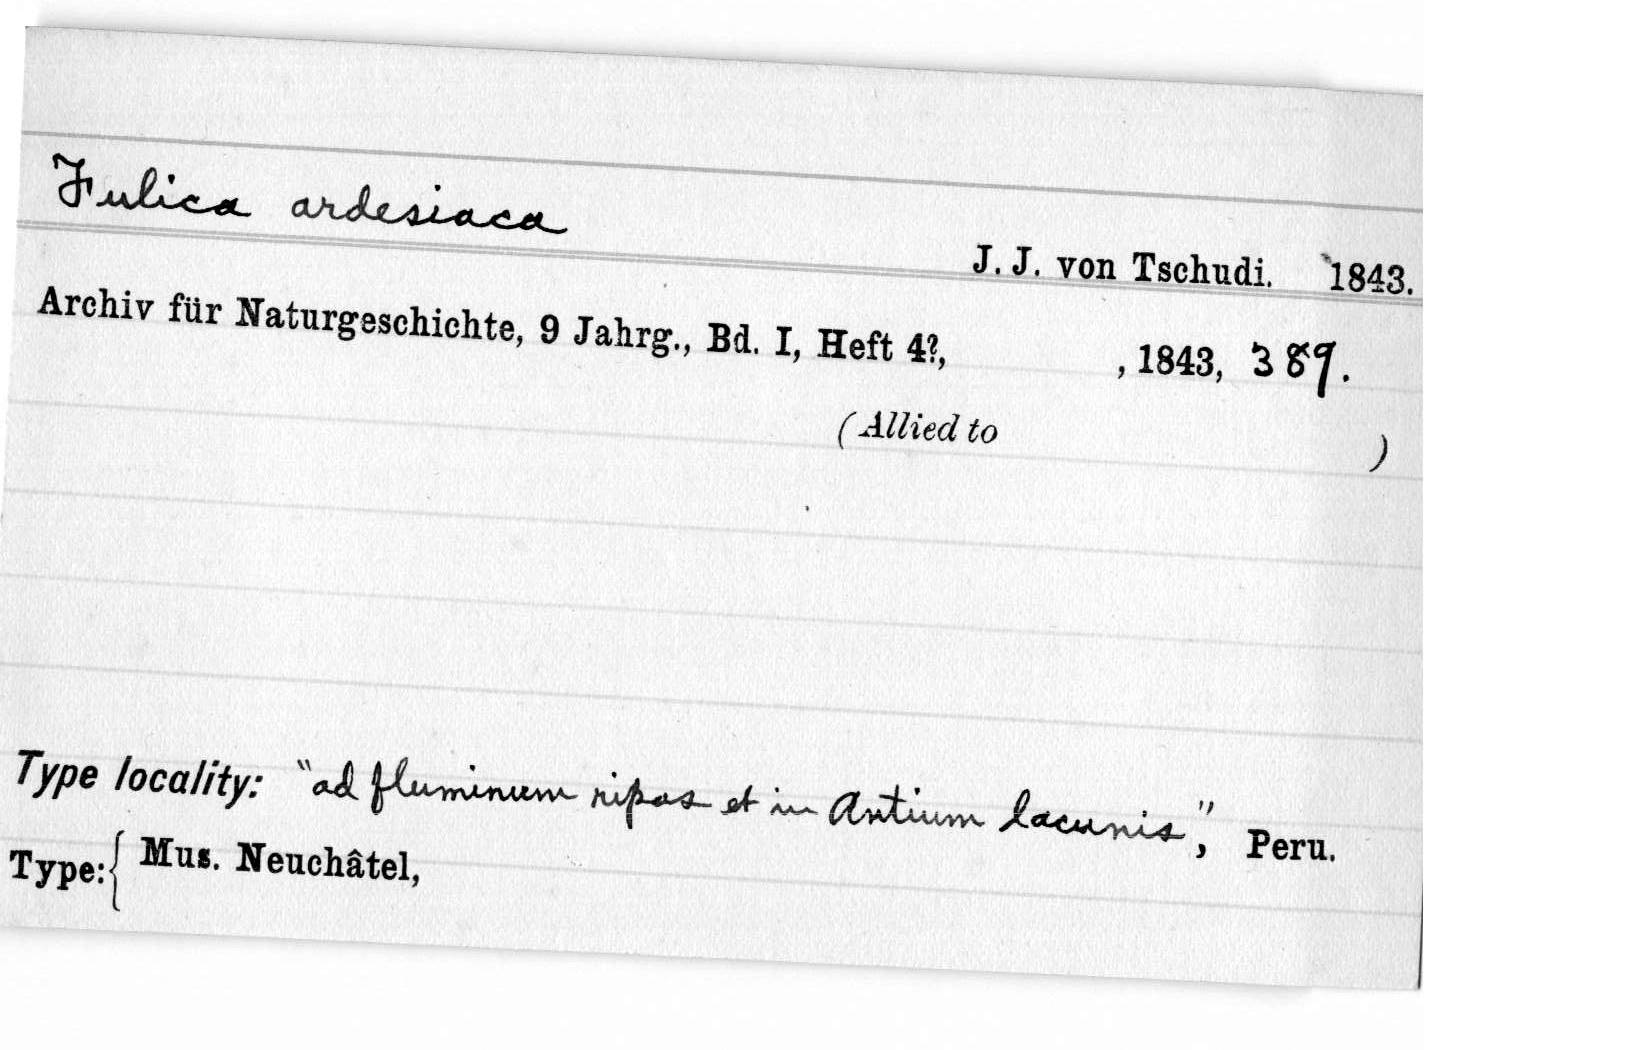 Fulica ardesiaca
J. J. von Tschudi. 1843.
Archiv für Naturgeschichte, 9 Jahrg., Bd. I, Heft 4?, , 1843, 389.
(Allied to )
Type locality: "ad fluminum ripas et in Antium lacunis", Peru.
Type: { Mus. Neuchâtel,